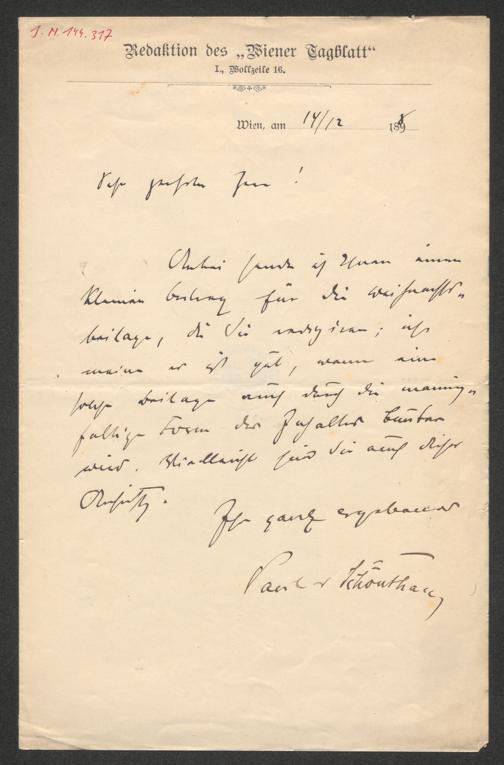 I. N. 144.317
Redaktion des „Wiener Tagblatt“
I., Wollzeile 16.
Wien, am 14/12 1898
Sehr geehrter Herr!
Anbei sende ich Ihnen einen
kleinen Beitrag für die Weihnachts-
beilage, die Sie redigiren; ich
meine es ist gut, wenn eine
solche Beilage auch durch die mannig-
faltige Form des Inhaltes bunter
wird. Vielleicht sind Sie auch dieser
Ansicht.
Ihr ganz ergebener
Paul v Schönthan